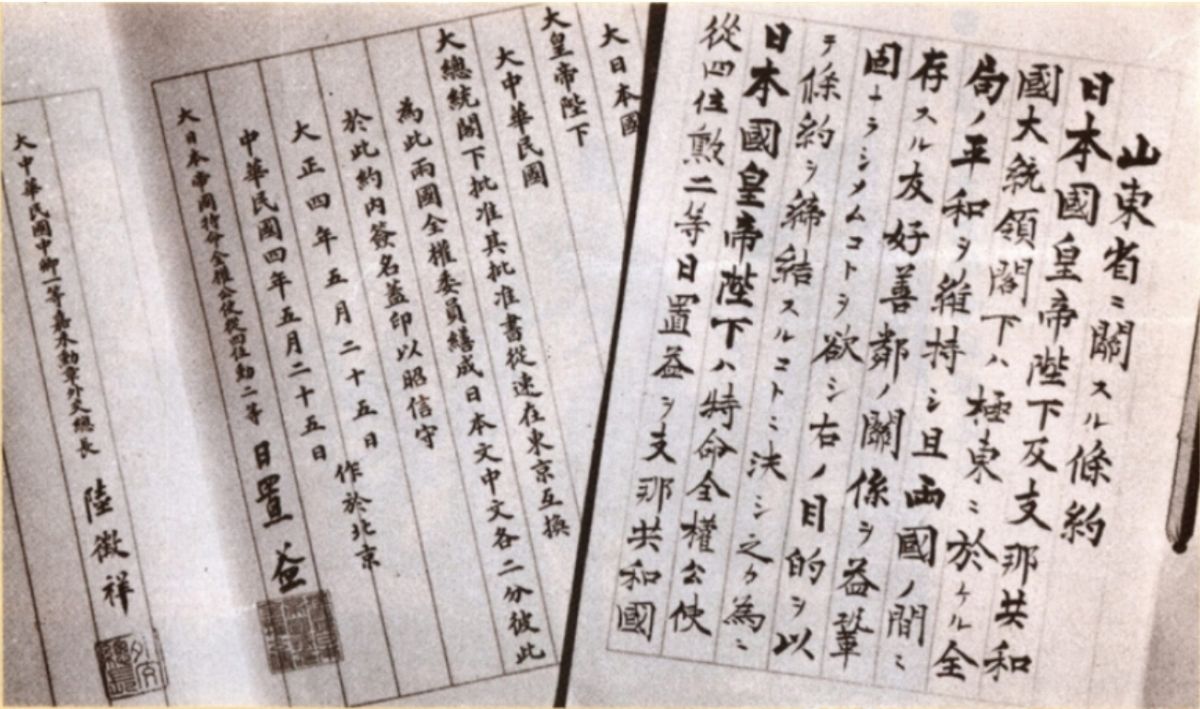 山東省ニ關スル條約
日本國皇帝陛下及支那共和
國大統領閣下ハ極東ニ於ケル全
局ノ平和ヲ維持シ且両國ノ間ニ
存スル友好善鄰ノ關係ヲ益鞏
固ナラシメムコトヲ欲シ右ノ目的ヲ以
テ條約ヲ締結スルコトニ決シ之カ為ニ
日本國皇帝陛下ハ特命全權公使
從四位勲二等日置益ヲ支那共和國
大日本國
大皇帝陛下
大中華民國
大總統閣下批准其批准書從速在東京互換
為此兩國全權委員繕成日本文中文各二分彼此
於此約內簽名蓋印以昭信守
大正四年五月二十五日
作於北京
中華民國四年五月二十五日
大日本帝國特命全權公使從四位勲二等 日置益
大中華民國中卿一等嘉禾勳章外交總長 陸徵祥
外交總長